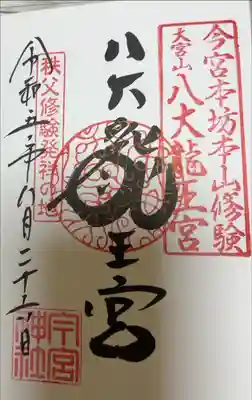 今宮本坊本山修験
大宮山
八大龍王宮
八大龍王宮
秩父修験発祥の地
令和五年八月二十五日
今宮神社